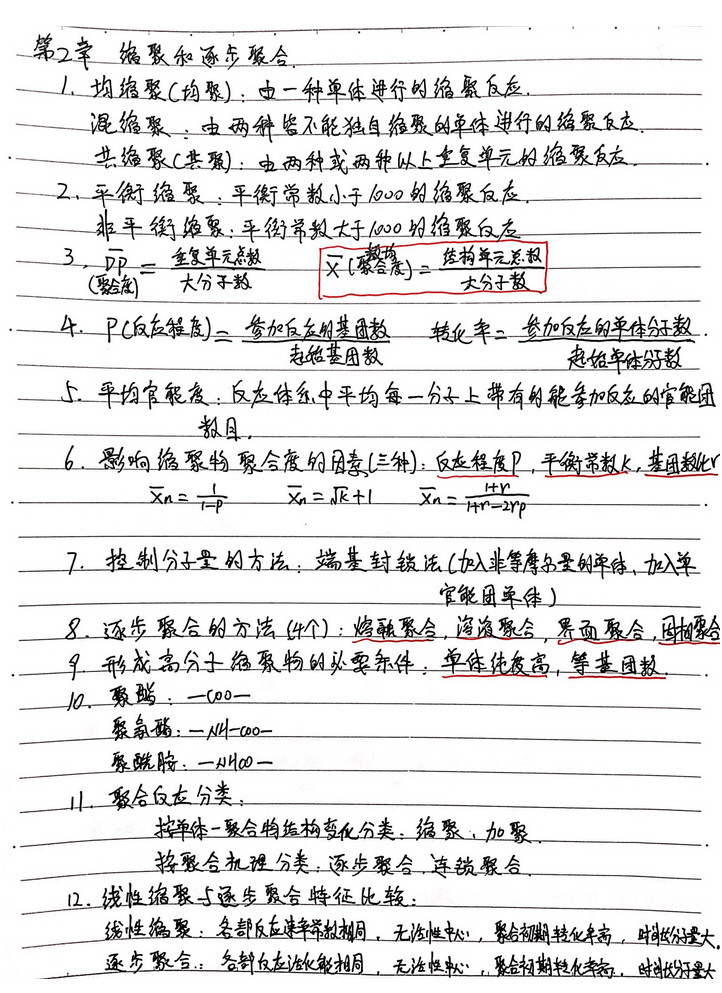 第2章 缩聚和逐步聚合.
1. 均缩聚(均聚): 由一种单体进行的缩聚反应.
混缩聚: 由两种皆不能独自缩聚的单体进行的缩聚反应.
共缩聚(共聚): 由两种或两种以上重复单元的缩聚反应.
2. 平衡缩聚: 平衡常数小于1000的缩聚反应.
非平衡缩聚: 平衡常数大于1000的缩聚反应
3. D̅P̅(聚合度) = 重复单元总数/大分子数 X̅(数均聚合度) = 结构单元总数/大分子数
4. P(反应程度) = 参加反应的基团数/起始基团数 转化率 = 参加反应的单体分子数/起始单体分子数
5. 平均官能度: 反应体系中平均每一分子上带有的能参加反应的官能团
数目.
6. 影响缩聚物聚合度的因素(三种): 反应程度P, 平衡常数K, 基团数比r
X̅n = 1/(1-P) X̅n = √K+1 X̅n = (1+r)/(1+r-2rp)
7. 控制分子量的方法: 端基封锁法(加入非等摩尔量的单体, 加入单
官能团单体)
8. 逐步聚合的方法(4个): 熔融聚合, 溶液聚合, 界面聚合, 固相聚合
9. 形成高分子缩聚物的必要条件: 单体纯度高, 等基团数.
10. 聚酯: —COO—
聚氨酯: —NH-COO—
聚酰胺: —NHCO—
11. 聚合反应分类:
按单体-聚合物结构变化分类: 缩聚, 加聚.
按聚合机理分类: 逐步聚合, 连锁聚合.
12. 线性缩聚与逐步聚合特征比较:
线性缩聚: 各部反应速率常数相同, 无活性中心, 聚合初期转化率高, 时间长分子量大.
逐步聚合: 各部反应活化能相同, 无活性中心, 聚合初期转化率高, 时间长分子量大